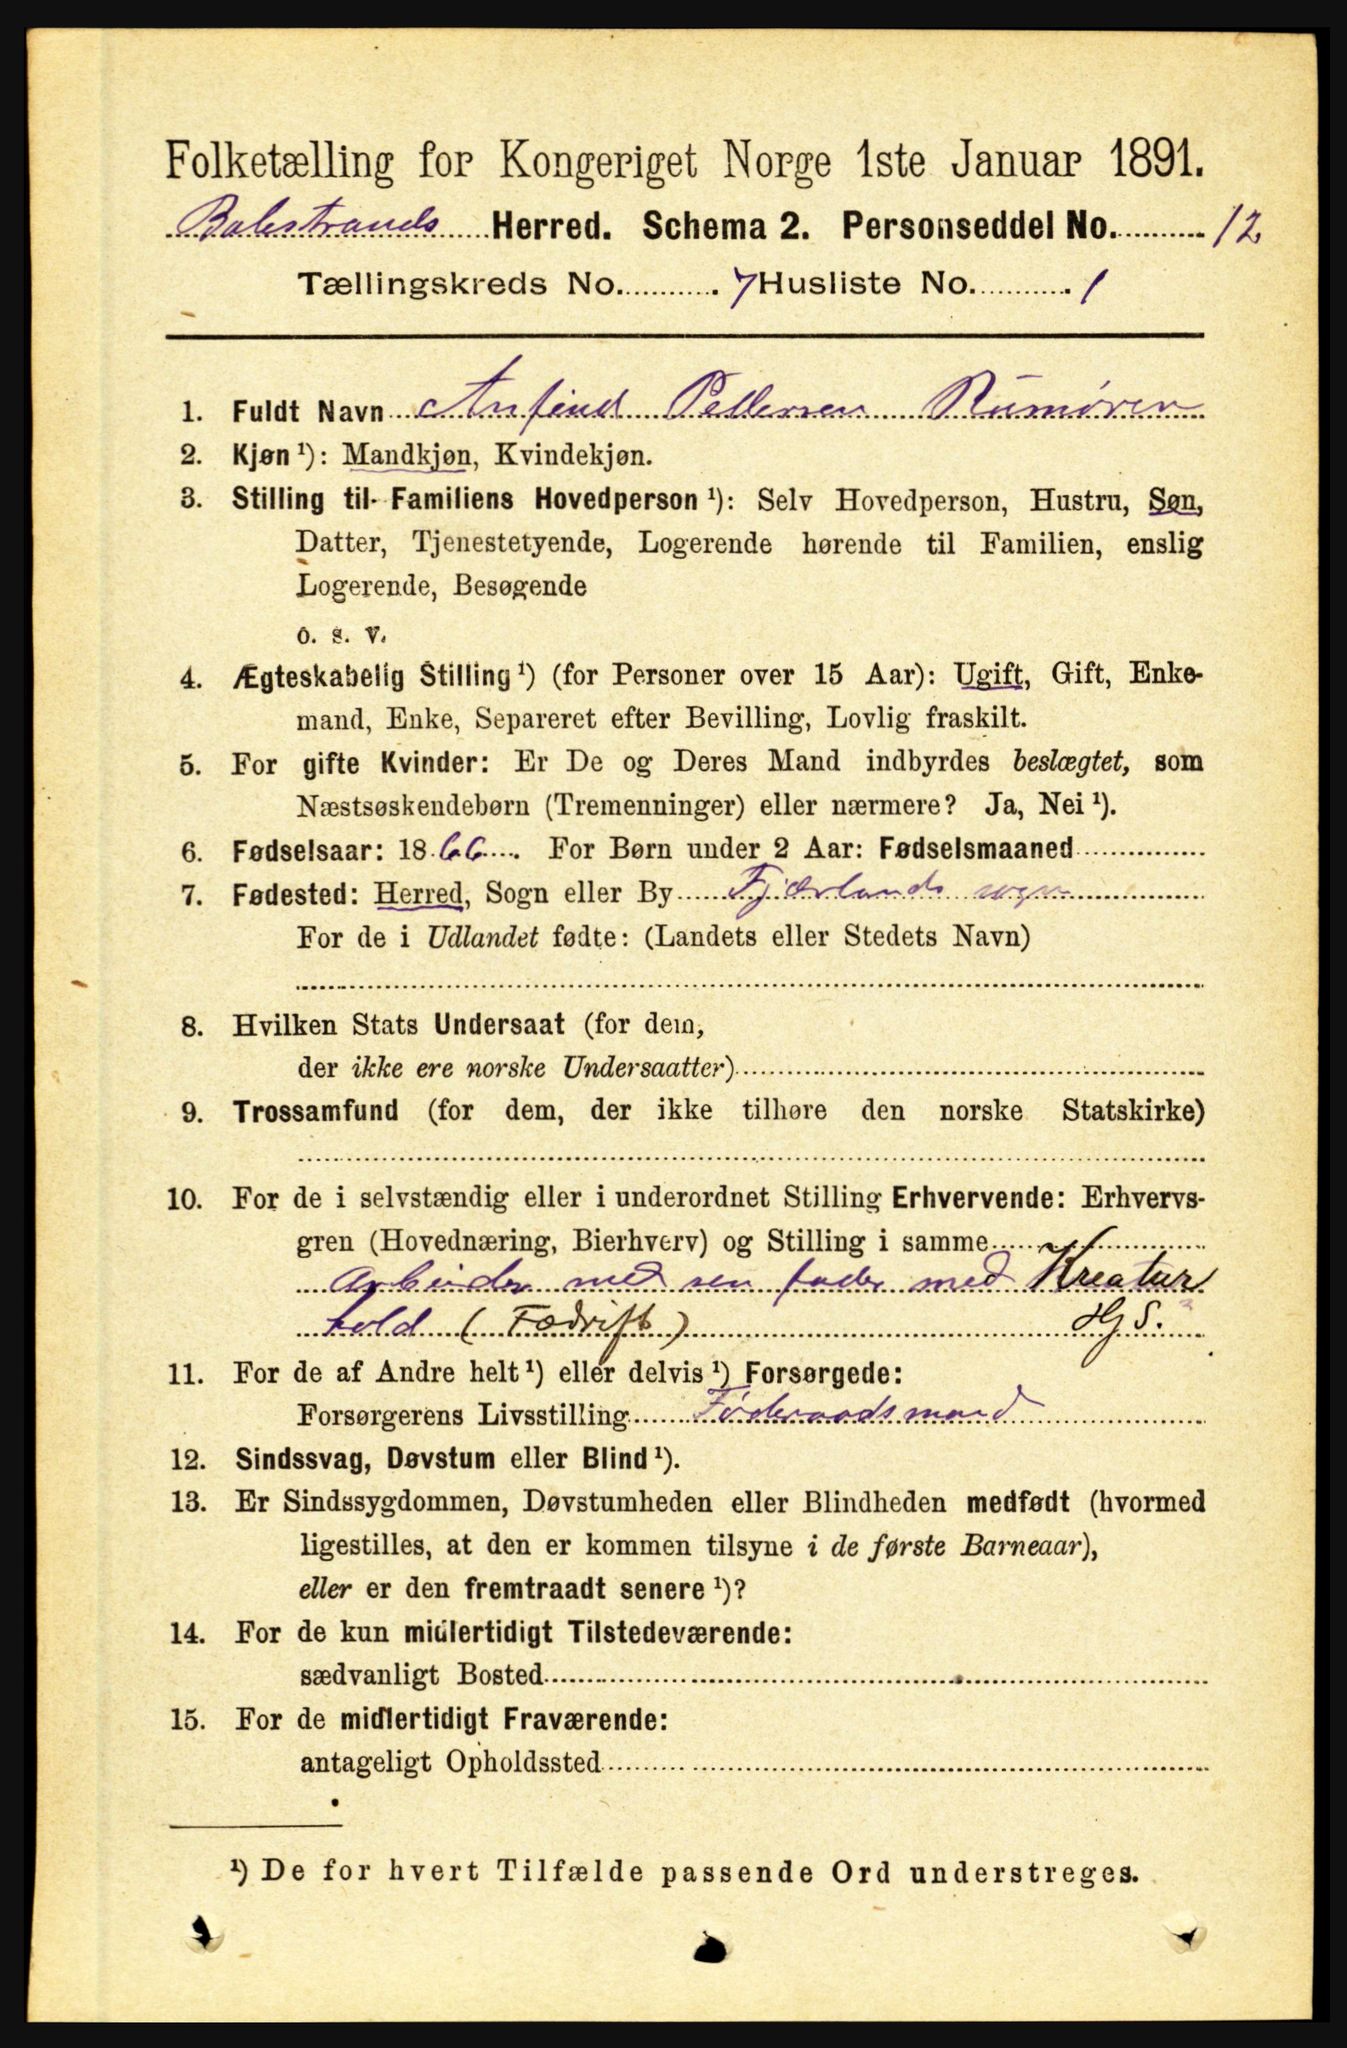 Folketælling for Kongeriget Norge 1ste Januar 1891.
Balestrands Herred. Schema 2. Personseddel No. 12
Tællingskreds No. 7 Husliste No. 1
1. Fuldt Navn Anfind Pedersen Rumøren
2. Kjøn ¹): Mandkjøn, Kvindekjøn.
3. Stilling til Familiens Hovedperson ¹): Selv Hovedperson, Hustru, Søn,
Datter, Tjenestetyende, Logerende hørende til Familien, enslig
Logerende, Besøgende
o. s. v.
4. Ægteskabelig Stilling ¹) (for Personer over 15 Aar): Ugift, Gift, Enke-
mand, Enke, Separeret efter Bevilling, Lovlig fraskilt.
5. For gifte Kvinder: Er De og Deres Mand indbyrdes beslægtet, som
Næstsøskendebørn (Tremenninger) eller nærmere? Ja, Nei ¹).
6. Fødselsaar: 1866. For Børn under 2 Aar: Fødselsmaaned
7. Fødested: Herred, Sogn eller By Fjærlands sogn
For de i Udlandet fødte: (Landets eller Stedets Navn)
8. Hvilken Stats Undersaat (for dem,
der ikke ere norske Undersaatter)
9. Trossamfund (for dem, der ikke tilhøre den norske Statskirke)
10. For de i selvstændig eller i underordnet Stilling Erhvervende: Erhvervs-
gren (Hovednæring, Bierhverv) og Stilling i samme
Arbeider med sen fader med Kreatur
hold (Fædrift) HjS.
11. For de af Andre helt ¹) eller delvis ¹) Forsørgede:
Forsørgerens Livsstilling Føderaadsmand
12. Sindssvag, Døvstum eller Blind ¹).
13. Er Sindssygdommen, Døvstumheden eller Blindheden medfødt (hvormed
ligestilles, at den er kommen tilsyne i de første Barneaar),
eller er den fremtraadt senere ¹)?
14. For de kun midlertidigt Tilstedeværende:
sædvanligt Bosted
15. For de midlertidigt Fraværende:
antageligt Opholdssted
¹) De for hvert Tilfælde passende Ord understreges.